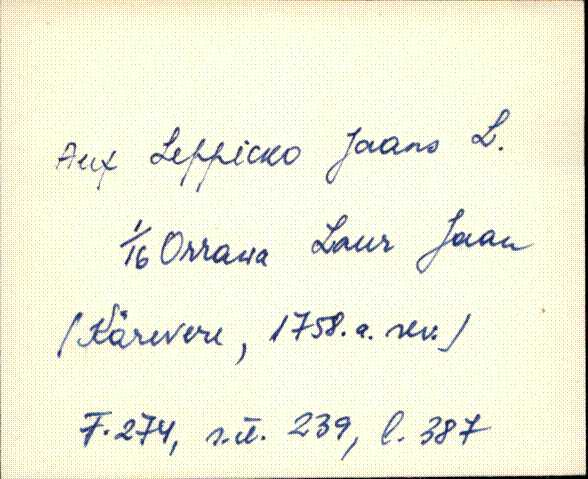 Aux Leppicko Jaans L.
1/16 Orrawa Laur Jaan
(Kärevere, 1758. a. rev.)
F. 274, s.ü. 239, l. 387